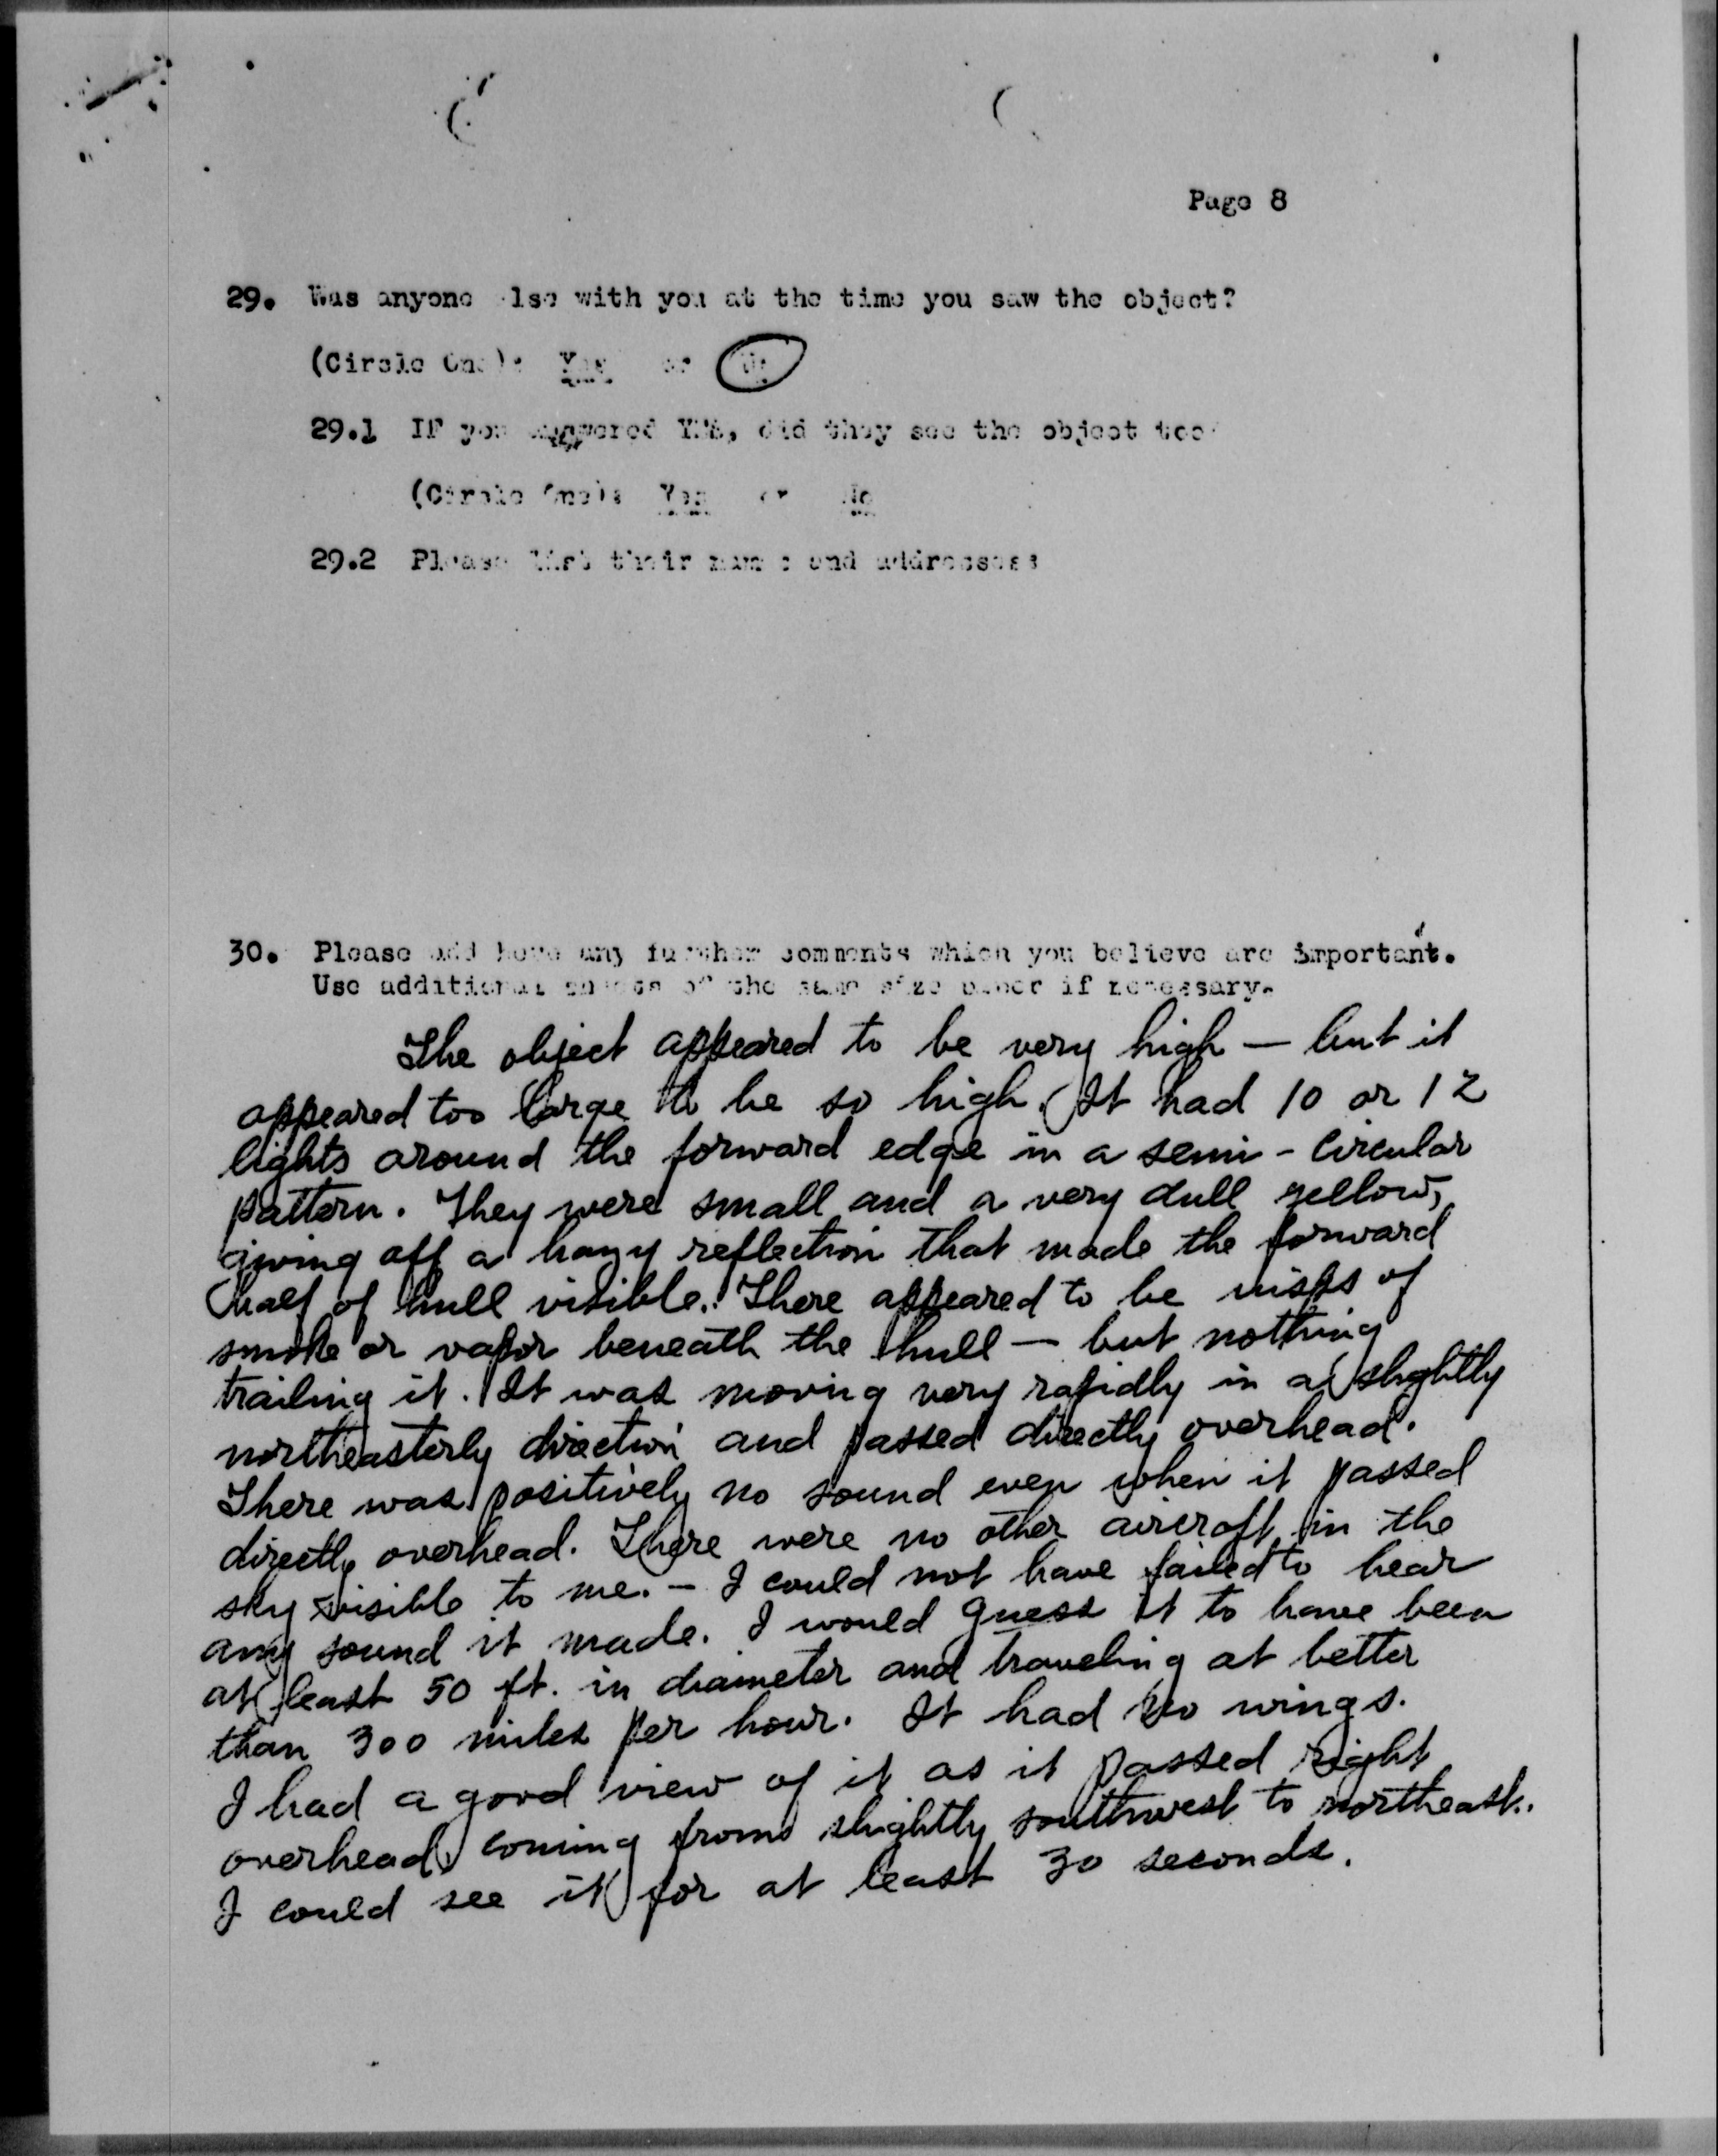 Page 8
29. Was anyone else with you at the time you saw the object?
(Circle One): Yes or No
29.1 IF you answered YES, did they see the object too?
(Circle One): Yes or No
29.2 Please list their names and addresses:
30. Please add here any further comments which you believe are important.
Use additional sheets of the same size paper if necessary.
The object appeared to be very high — but it
appeared too large to be so high. It had 10 or 12
lights around the forward edge in a semi - circular
pattern. They were small and a very dull yellow,
giving off a hazy reflection that made the forward
half of hull visible. There appeared to be wisps of
smoke or vapor beneath the hull — but nothing
trailing it. It was moving very rapidly in a slightly
northeasterly direction and passed directly overhead.
There was positively no sound even when it passed
directly overhead. There were no other aircraft in the
sky visible to me. - I could not have failed to hear
any sound it made. I would guess it to have been
at least 50 ft. in diameter and traveling at better
than 300 miles per hour. It had no wings.
I had a good view of it as it passed right
overhead coming from slightly southwest to northeast.
I could see it for at least 30 seconds.